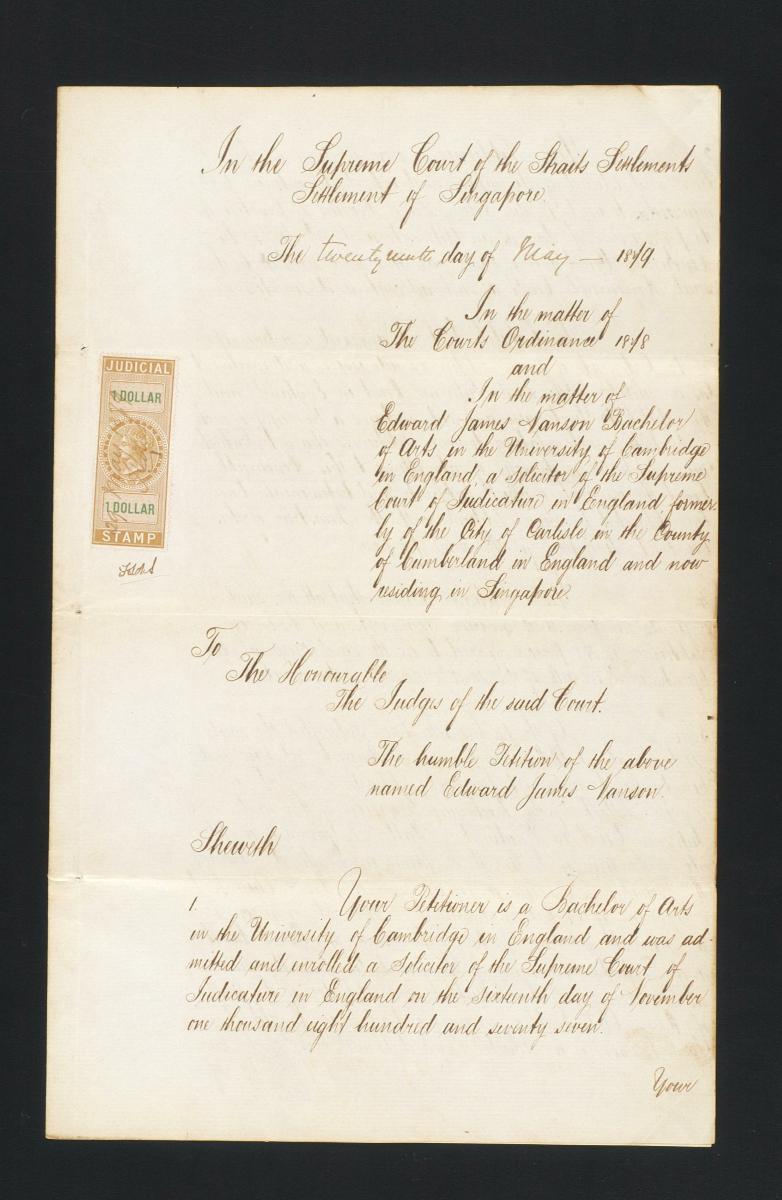 In the Supreme Court of the Straits Settlements
Settlement of Singapore.
The twenty ninth day of May — 1879
In the matter of
The Courts Ordinance 1878
and
In the matter of
Edward James Nanson Bachelor
of Arts in the University of Cambridge
in England, a solicitor of the Supreme
Court of Judicature in England, former-
ly of the City of Carlisle in the County
of Cumberland in England and now
residing in Singapore.
JUDICIAL
1 DOLLAR
1 DOLLAR
STAMP
To
The Honourable
The Judges of the said Court.
The humble Petition of the above
named Edward James Nanson.
Sheweth
1. Your Petitioner is a Bachelor of Arts
in the University of Cambridge in England and was ad-
mitted and enrolled a Solicitor of the Supreme Court of
Judicature in England on the sixteenth day of November
one thousand eight hundred and seventy seven.
Your